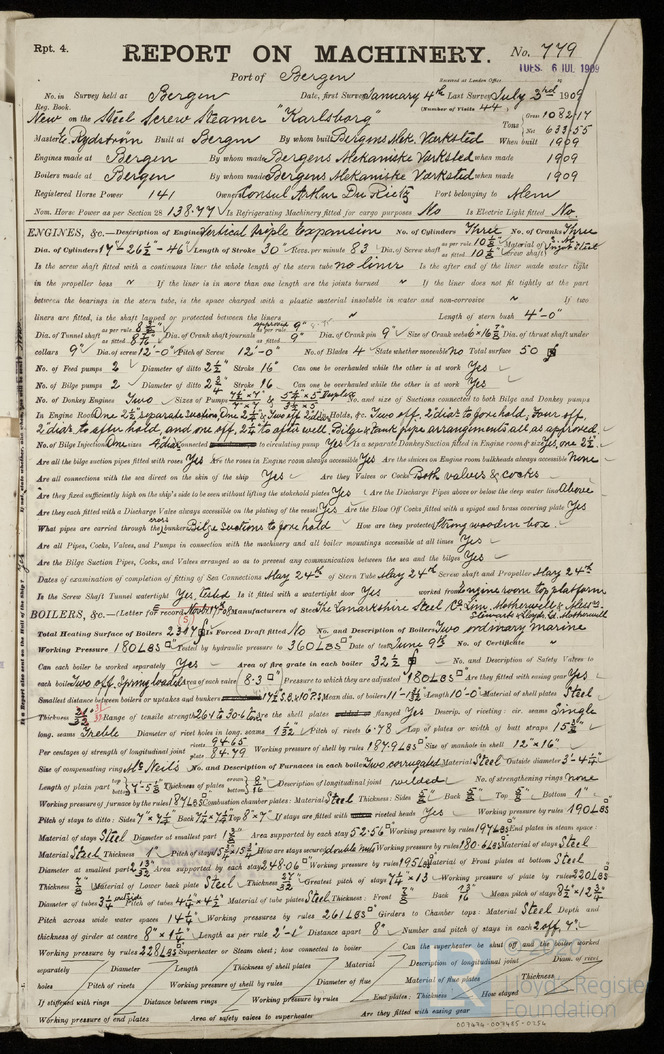 Rpt. 4.
REPORT ON MACHINERY.
No. 779
TUES. 6 JUL 1909
Port of Bergen
Received at London Office
No. in Survey held at Bergen Date, first Survey January 4th Last Survey July 3rd 1909
Reg. Book.
(Number of Visits 44)
New on the Steel Screw Steamer "Karlsborg" Tons Gross 1082.17 Net 633.55
Master C. Rydström Built at Bergen By whom built Bergens Mek. Værksted When built 1909
Engines made at Bergen By whom made Bergens Mekaniske Værksted when made 1909
Boilers made at Bergen By whom made Bergens Mekaniske Værksted when made 1909
Registered Horse Power 141 Owners Consul Arthur Du Rietz Port belonging to
Nom. Horse Power as per Section 28 138.77 Is Refrigerating Machinery fitted for cargo purposes No Is Electric Light fitted No.
ENGINES, &c.—Description of Engines Vertical triple Expansion No. of Cylinders Three No. of Cranks Three
Dia. of Cylinders 17"-26½"-46" Length of Stroke 30" Revs. per minute 83 Dia. of Screw shaft as per rule as fitted 10⅝" Material of screw shaft Ingot Steel
Is the screw shaft fitted with a continuous liner the whole length of the stern tube no liner Is the after end of the liner made water tight
in the propeller boss " If the liner is in more than one length are the joints burned " If the liner does not fit tightly at the part
between the bearings in the stern tube, is the space charged with a plastic material insoluble in water and non-corrosive " If two
liners are fitted, is the shaft lapped or protected between the liners " Length of stern bush 4'-0"
Dia. of Tunnel shaft as per rule as fitted Dia. of Crank shaft journals as per rule as fitted 9" Dia. of Crank pin 9" Size of Crank webs 6"×16⅞" Dia. of thrust shaft under
collars 9" Dia. of screw 12'-0" Pitch of Screw 12'-0" No. of Blades 4 State whether moveable No Total surface 50
No. of Feed pumps 2 Diameter of ditto 2½" Stroke 16" Can one be overhauled while the other is at work Yes
No. of Bilge pumps 2 Diameter of ditto 2¾" Stroke 16 Can one be overhauled while the other is at work Yes
No. of Donkey Engines Two Sizes of Pumps No. and size of Suctions connected to both Bilge and Donkey pumps
In Engine Room One 2½" separate suction One 2½" & Two off 2" dia In Holds, &c. Two off, 2" dia: to fore hold, Four off,
2" dia. to after hold, and one off, 2½" to after well. Bilge & tank pipe arrangements all as approved.
No. of Bilge Injections One sizes 4" dia Connected to circulating pump Yes Is a separate Donkey Suction fitted in Engine room & size Yes, one 2½"
Are all the bilge suction pipes fitted with roses Yes Are the roses in Engine room always accessible Yes Are the sluices on Engine room bulkheads always accessible None
Are all connections with the sea direct on the skin of the ship Yes Are they Valves or Cocks Both valves & cocks
Are they fixed sufficiently high on the ship's side to be seen without lifting the stokehold plates Yes Are the Discharge Pipes above or below the deep water line Above
Are they each fitted with a Discharge Valve always accessible on the plating of the vessel Yes Are the Blow Off Cocks fitted with a spigot and brass covering plate Yes
What pipes are carried through the bunkers Bilge Suctions to fore hold How are they protected Strong wooden box.
Are all Pipes, Cocks, Valves, and Pumps in connection with the machinery and all boiler mountings accessible at all times Yes
Are the Bilge Suction Pipes, Cocks, and Valves arranged so as to prevent any communication between the sea and the bilges Yes
Dates of examination of completion of fitting of Sea Connections May 24th of Stern Tube May 24th Screw shaft and Propeller May 24th
Is the Screw Shaft Tunnel watertight Yes, tested Is it fitted with a watertight door Yes worked from Engine room top platform
BOILERS, &c.—(Letter for record (S)) Manufacturers of Steel The Lanarkshire Steel Co. Lim. Motherwell & Messrs. Stewarts & Lloyds, Ld. Motherwell
Total Heating Surface of Boilers 2317 Is Forced Draft fitted No No. and Description of Boilers Two ordinary marine
Working Pressure 180 LBS Tested by hydraulic pressure to 360 LBS Date of test June 9th No. of Certificate "
Can each boiler be worked separately Yes Area of fire grate in each boiler 32½ No. and Description of Safety Valves to
each boiler Two off, Spring loaded Area of each valve 8.3 Pressure to which they are adjusted 180 LBS Are they fitted with easing gear Yes
Smallest distance between boilers or uptakes and bunkers Mean dia. of boilers Length 10'-0" Material of shell plates Steel
Thickness Range of tensile strength 26.4 to 30.6 tons Are the shell plates flanged Yes Descrip. of riveting: cir. seams Single
long. seams Treble Diameter of rivet holes in long. seams 1 1/32" Pitch of rivets 6.78 Lap of plates or width of butt straps
Per centages of strength of longitudinal joint rivets 94.65 plate 84.79 Working pressure of shell by rules 187.9 LBS Size of manhole in shell 12"×16"
Size of compensating ring McNeils No. and Description of Furnaces in each boiler Two, corrugated Material Steel Outside diameter 3'-4¼"
Length of plain part top bottom Thickness of plates crown bottom Description of longitudinal joint welded No. of strengthening rings none
Working pressure of furnace by the rules 187 LBS Combustion chamber plates: Material Steel Thickness: Sides ⅝" Back Top ⅝" Bottom 1"
Pitch of stays to ditto: Sides Back Top 8"×7" If stays are fitted with nuts or riveted heads Yes Working pressure by rules 190 LBS
Material of stays Steel Diameter at smallest part Area supported by each stay 52.56 Working pressure by rules 197 LBS End plates in steam space:
Material Steel Thickness 1" Pitch of stays How are stays secured double nuts Working pressure by rules 180.6 LBS Material of stays Steel
Diameter at smallest part Area supported by each stay 248.06 Working pressure by rules 195 LBS Material of Front plates at bottom Steel
Thickness Material of Lower back plate Steel Thickness 27/32 Greatest pitch of stays 7¼×13 Working pressure of plate by rules 320 LBS
Diameter of tubes 3¼" Pitch of tubes 4¼"×4½" Material of tube plates Steel Thickness: Front Back 13/16 Mean pitch of stays
Pitch across wide water spaces 14¼" Working pressures by rules 261 LBS Girders to Chamber tops: Material Steel Depth and
thickness of girder at centre 8"×1¼" Length as per rule 2'-1" Distance apart 8" Number and pitch of stays in each 2 off, 7"
Working pressure by rules 228 LBS Superheater or Steam chest; how connected to boiler Can the superheater be shut off and the boiler worked
separately Diameter Length Thickness of shell plates Material Description of longitudinal joint Diam. of rivet
holes Pitch of rivets Working pressure of shell by rules Diameter of flue Material of flue plates Thickness
If stiffened with rings Distance between rings Working pressure by rules End plates: Thickness How stayed
Working pressure of end plates Area of safety valves to superheater Are they fitted with easing gear
© 2020
Lloyd's Register
Foundation
007474-007485-0256